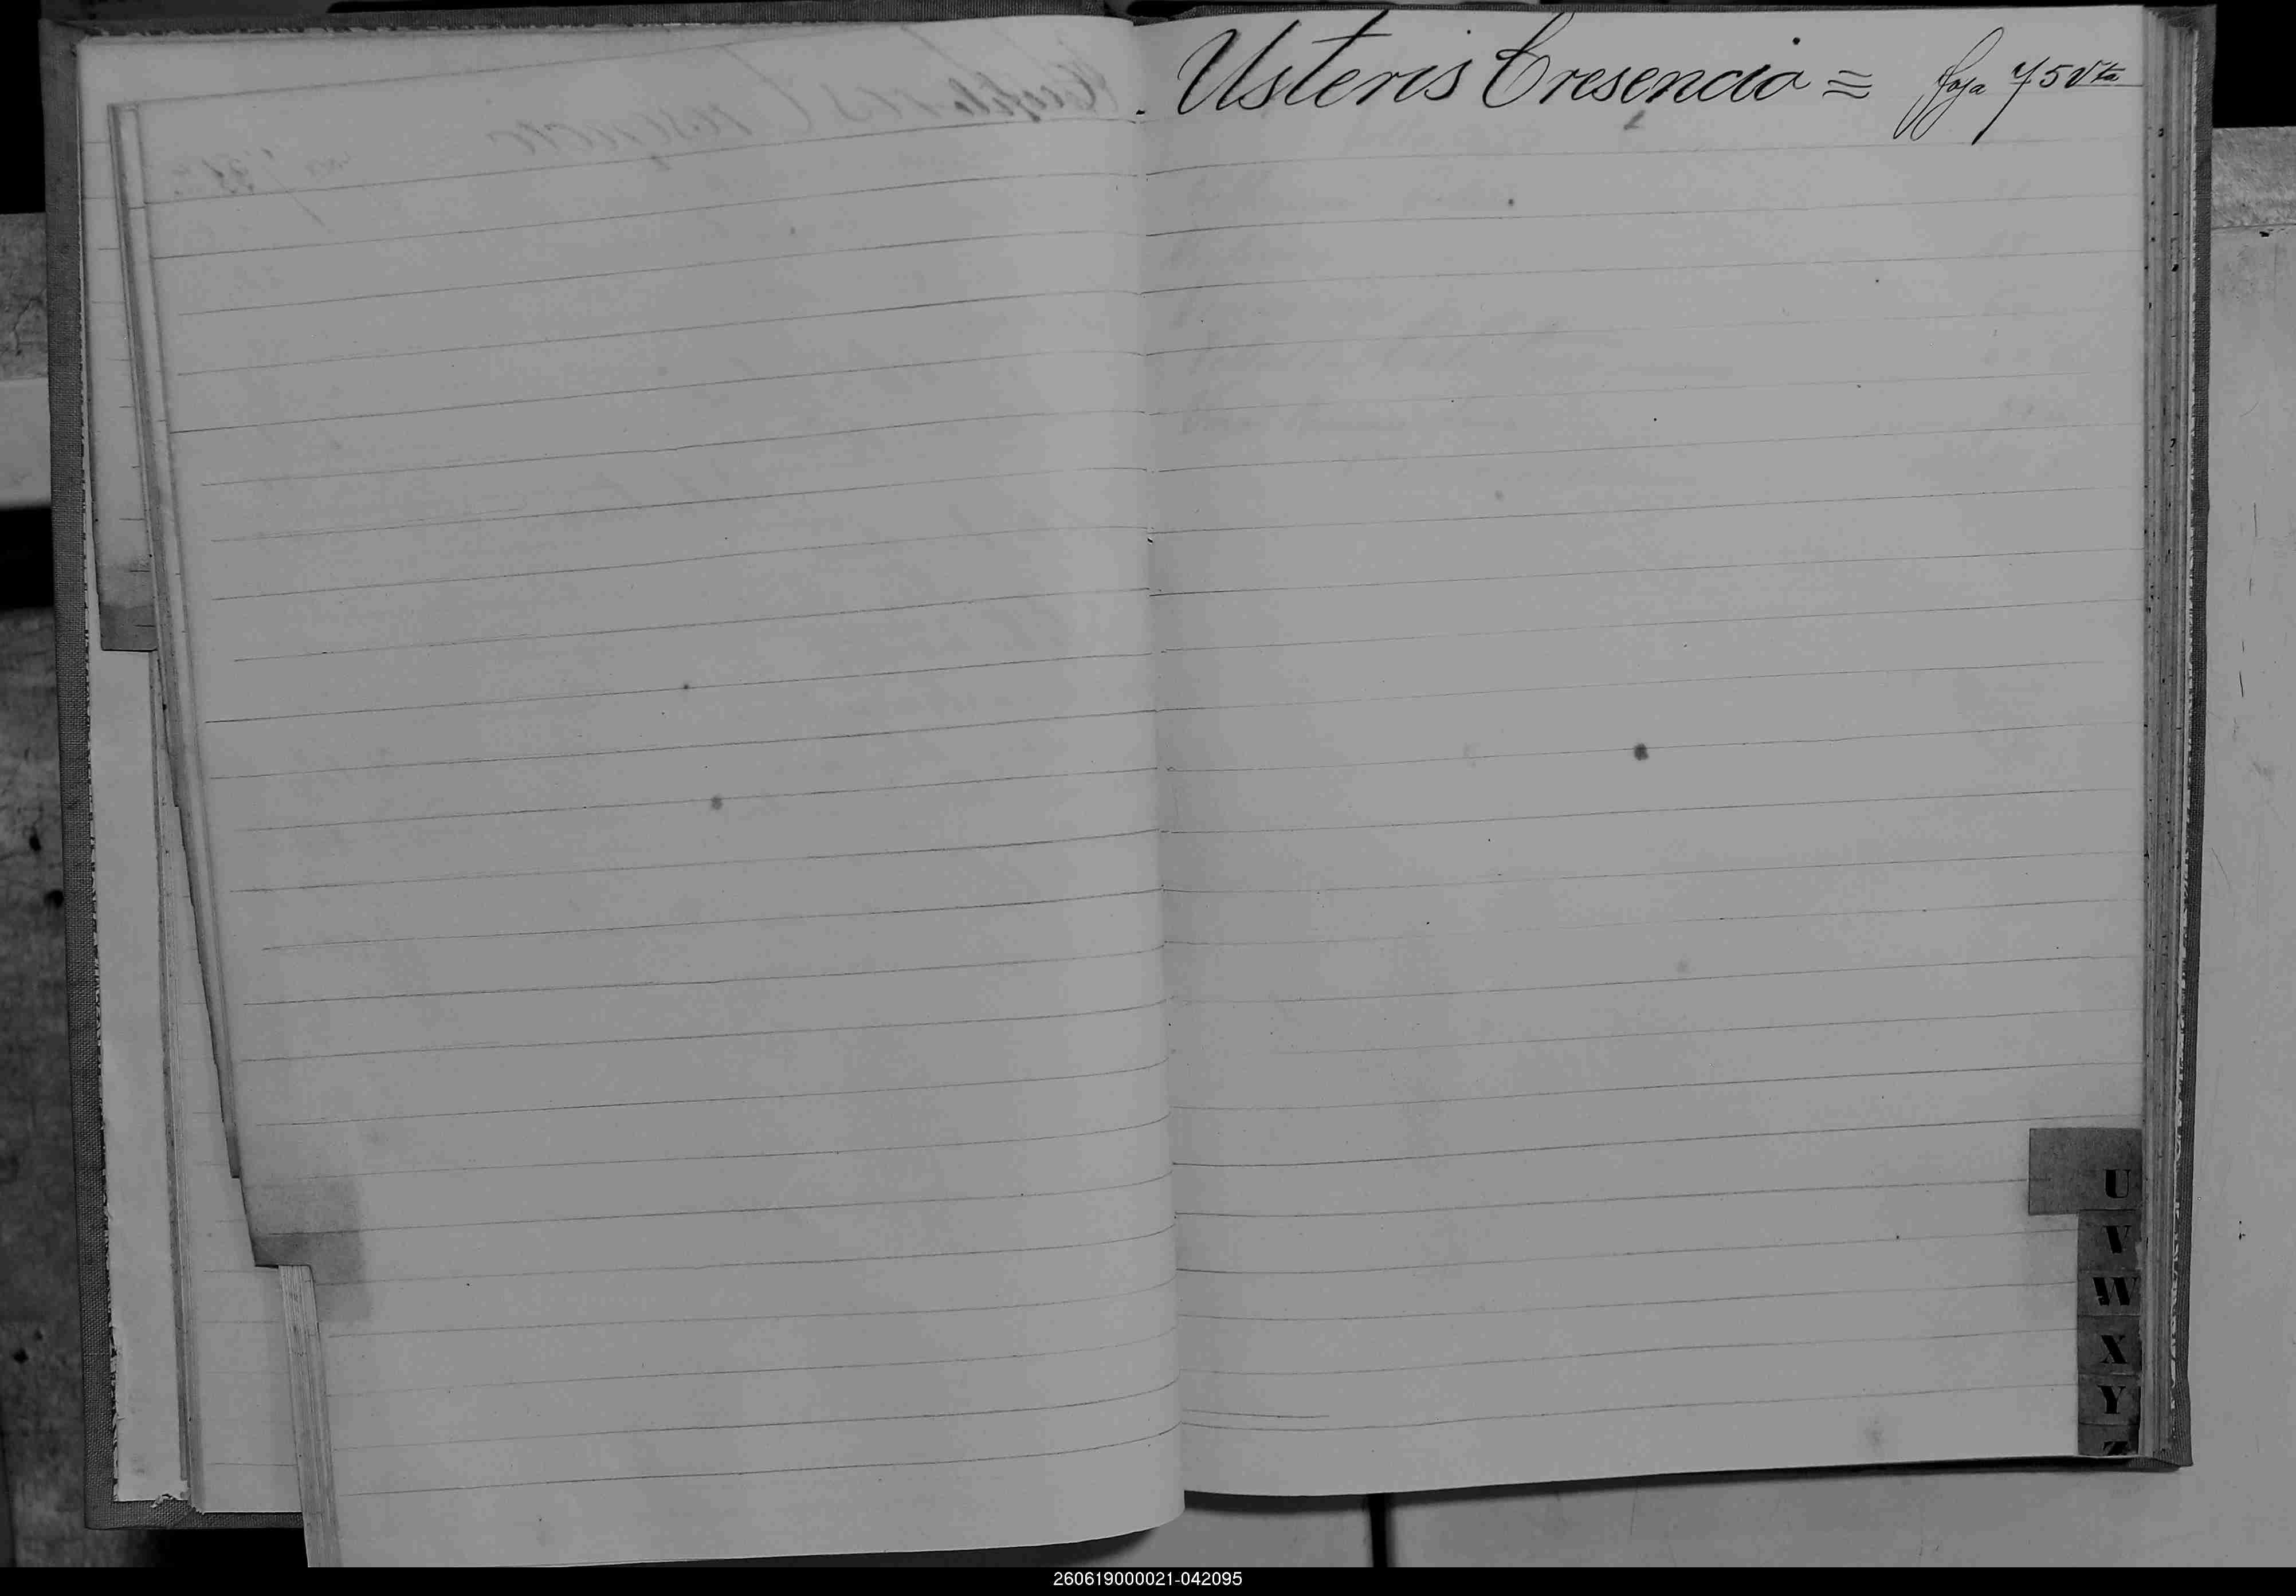 Usteris Cresencia = foja 75 Vta
U
V
W
X
Y
Z
260619000021-042095